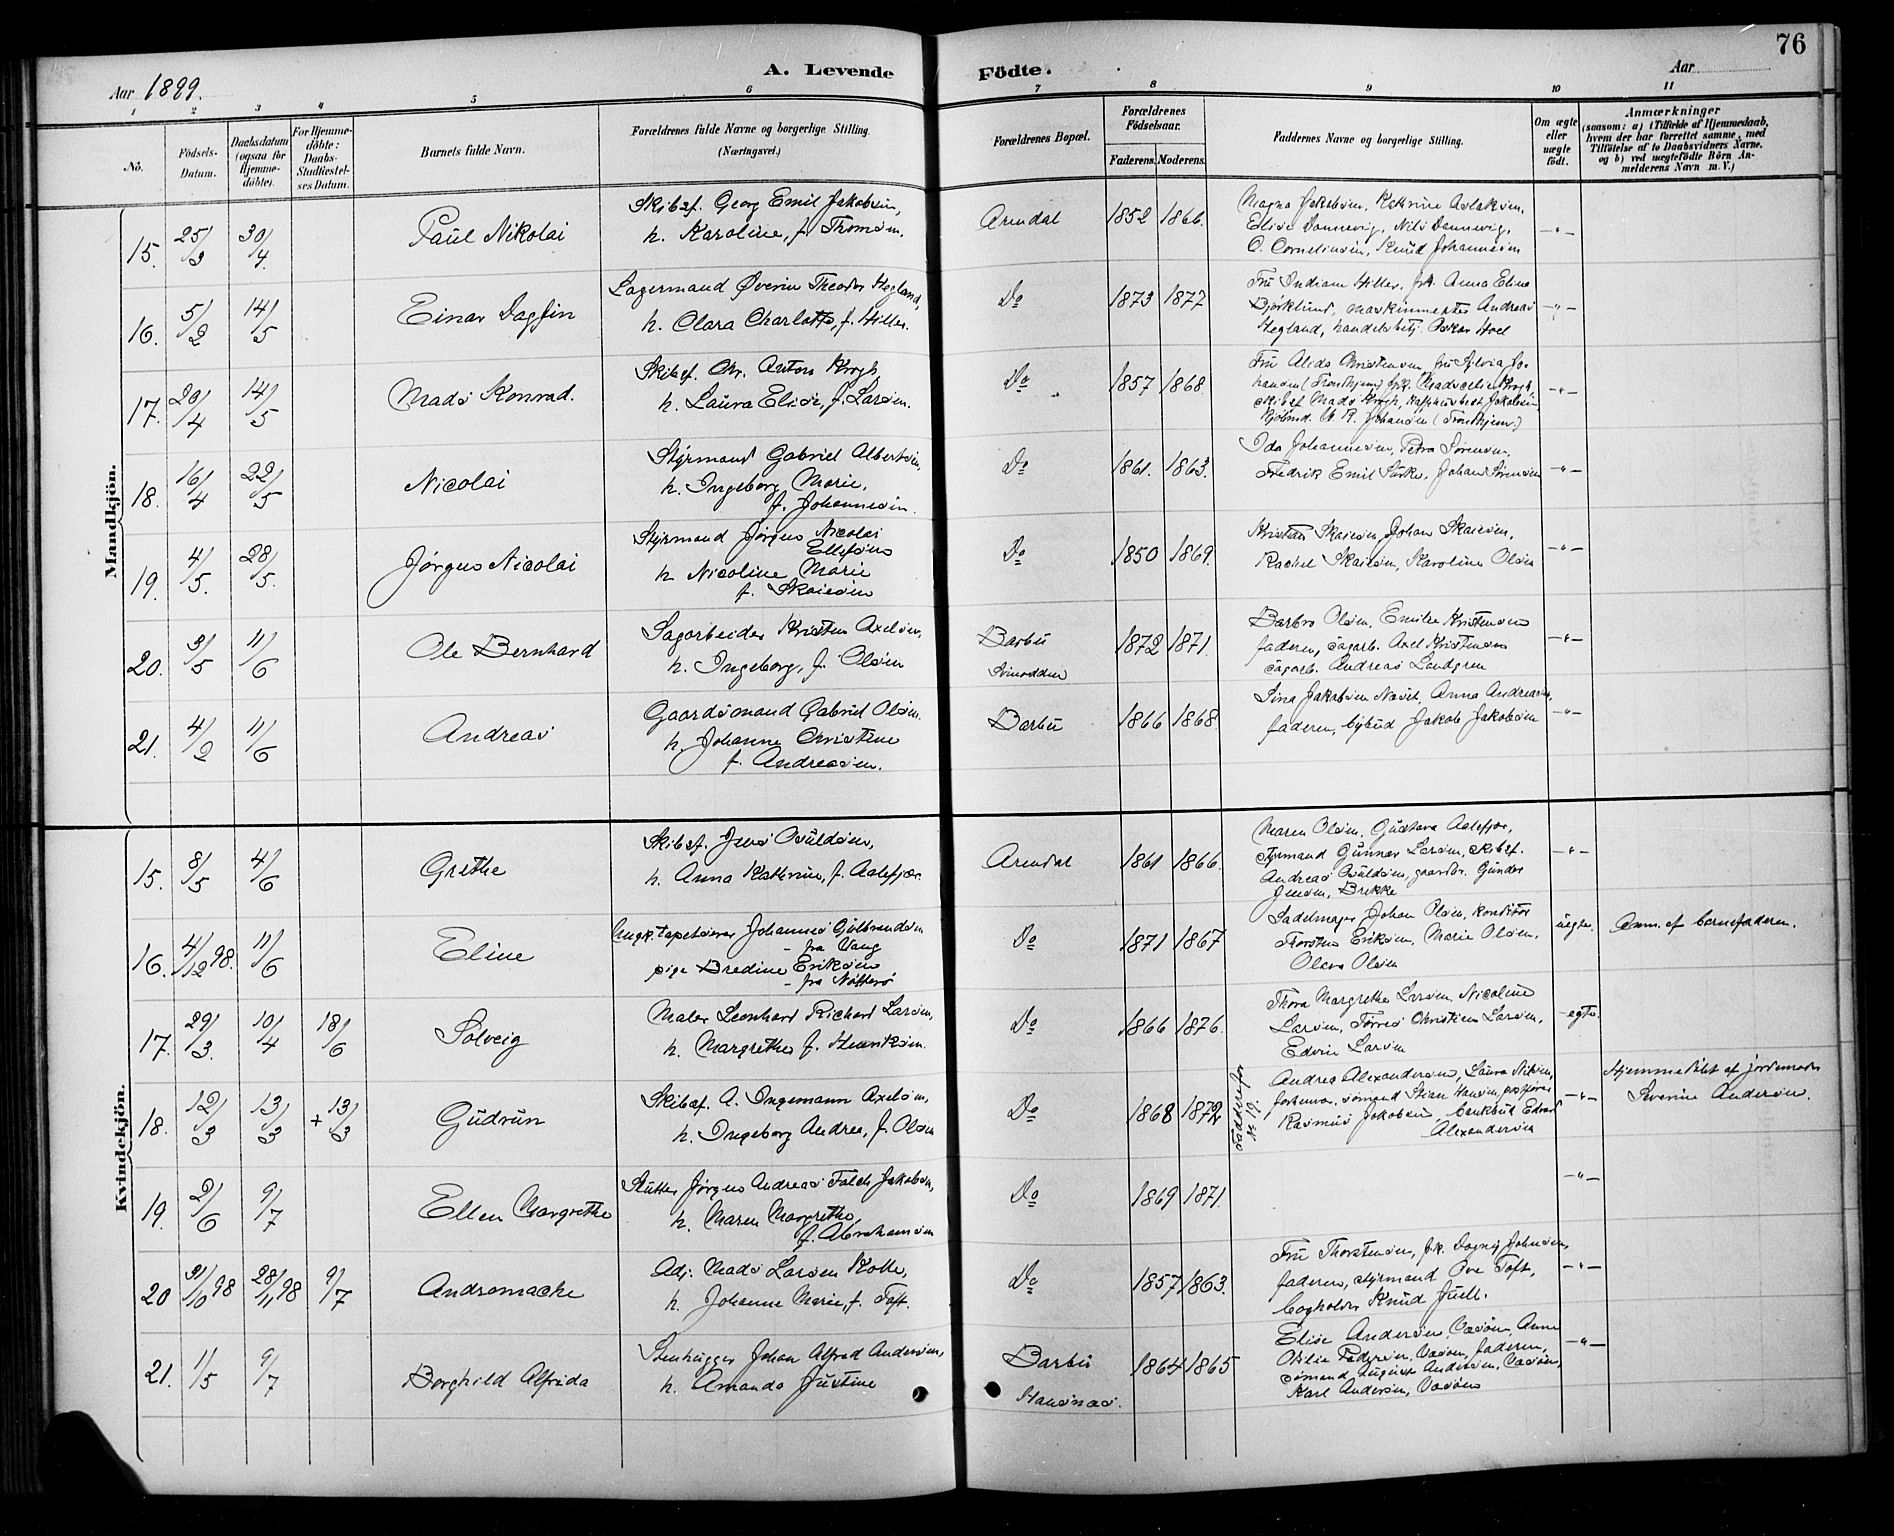 76
A. Levende Födte.
Aar 1899.
Aar
1 2 3 4 5 6 7 8 9 10 11
No.
Födsels-Datum.
Daabsdatum (ogsaa for Hjemme-döbte).
For Hjemme-döbte: Daabs-Stadfæstel-ses Datum.
Barnets fulde Navn.
Forældrenes fulde Navne og borgerlige Stilling. (Næringsvei.)
Forældrenes Bopæl.
Forældrenes Födselsaar.
Faderens. Moderens.
Faddernes Navne og borgerlige Stilling.
Om ægte eller uægte födt.
Anmærkninger
(saasom: a) i Tilfælde af Hjemmedaab,
hvem der har forrettet samme, med
Tilföielse af to Daabsvidners Navne,
og b) ved uægtefödte Börn An-
melderens Navn m. V.)
Mandkjön.
15. 25/3 30/4 Paul Nikolai
Skibsf. Georg Emil Jakobsen,
h. Karoline, f. Thomsen.
Arendal 1852 1866.
Magna Jakobsen, Kathrine Aslaksen,
Elise Dannevig, Nils Dannevig,
O. Corneliusen, Knud Johannesen
—"—
16. 5/2 14/5 Einar Dagfin
Lagermand Øverin Theodor Hegland,
h. Clara Charlotte, f. Hiller.
Do 1873 1877
Fru Indiane Hiller, frk. Anna Eline
Björklund, maskinmester Andreas
Hegland, handelsbetj. Oskar Hoel
—"—
17. 20/4 14/5 Mads Konrad.
Skibsf. Chr. Anton Krogh,
h. Laura Elise, f. Larsen.
Do 1857 1868
Fru Alida Christensen, fru Sylvia Jo-
hansen (Trondhjem) frk. Krogh,
skibsf. Mads Krogh, Jakobsen
Johansen (Trondhjem.)
—"—
18. 16/4 22/5 Nicolai
Styrmand Gabriel Albertsen,
h. Ingeborg Marie,
f. Johannesen.
Do 1861. 1863.
Ida Johannesen, Petra Sørensen,
Fredrik Emil Stærke, Johan Sørensen
—"—
19. 4/5. 28/5. Jørgen Nicolai
Styrmand Jørgen Nicolai
Ellefsen
h. Nicoline Marie
f. Skaiesen
Do 1850 1869.
Kristian Skaiesen, Johan Skaiesen,
Rachel Skaiesen, Karoline Olsen
—"—
20. 3/5 11/6 Ole Bernhard
Sagarbeider Kristen Axelsen,
h. Ingeborg, f. Olsen
Barbu
Svinodden
1872 1871.
Barbro Olsen, Emilie Kristensen
faderen, sagarb. Axel Kristensen
sagarb. Andreas Landgren
—"—
21. 4/2 11/6 Andreas
Gaardsmand Gabriel Olsen.
h. Johanne Christine
f. Andreasen.
Barbu 1866 1868
Sina Jakobsen Næset, Anna Andreasen,
faderen, bybud Jakob Jakobsen
—"—
Kvindekjön.
15. 8/5 4/6 Grethe
Skibsf. Jens Osuldsen,
h. Anna Kathrine, f. Aalefjær.
Arendal 1861 1866.
Maren Olsen, Gustava Aalefjær,
styrmand Gunnar Larsen, skibsf.
Andreas Osuldsen, gaardbr. Gunder
Jensen, Brekke
—"—
16. 4/12 98. 11/6 Eline
Ungk. tapetserer Johannes Gulbrandsen
- fra Vang
pige Bredine Eriksen
- fra Nøtterø
Do 1871 1867
Sadelmager Johan Olsen, konditor
Thorsten Eriksen, Marie Olsen,
Olava Olsen
uegte. Anm. af barnefaderen.
17. 29/3. 10/4 18/6 Solveig
Maler Leonhard Richard Larsen,
h. Margrethe f. Henriksen.
Do 1866 1876.
Thora Margrethe Larsen, Nicoline
Larsen, Torres Christian Larsen,
Edvin Larsen
egte.
18. 12/3 13/3 + 13/3 Gudrun
Skibsf. A. Ingemann Axelsen,
h. Ingeborg Andrea, f. Olsen
Do 1868 1872
Faddere for
N. 19.
Andrea Alexandersen, Laura Nilsen,
sømand Stian Hansen,
Rasmus Jakobsen, bankbud Edvard
Alexandersen
—"—
Hjemmedöbt af jordmoder
Severine Andersen.
19. 2/6 9/7 Ellen Margrethe
Jørgen Andreas Falch Jakobsen,
h. Maren Margrethe,
f. Abrahamsen
Do 1869 1871.
—"—
20 31/10 98 28/11 98 9/7 Andromache
Adj. Mads Larsen Kolle,
h. Johanne Marie, f. Toft.
Do 1857 1863.
Fru Thorstensen, frk. Dagny Johnsen,
faderen, styrmand Ove Toft,
bogholder Knud Juell.
—"—
21. 1/5 9/7 Borghild Alfrida
Stenhugger Johan Alfred Andersen,
h. Amanda Justine
Barbu
Stansnæs.
1864 1865
Elise Andersen, Vasøen, Anne
Otilie Pedersen, Vasøen, faderen,
sømand August Andersen, Vasøen,
Karl Andersen, Vasøen
—"—